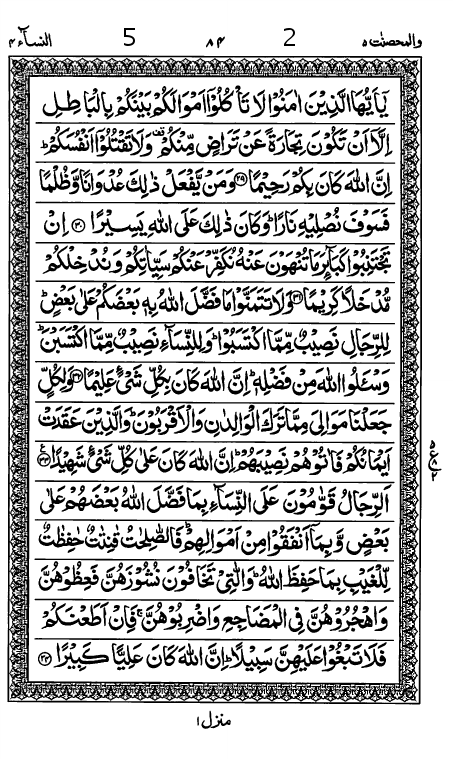 والمحصنت ٥ 2 ٨٤ 5 النسآء ٤
يٰۤاَيُّهَا الَّذِيْنَ اٰمَنُوْا لَا تَاْكُلُوْۤا اَمْوَالَكُمْ بَيْنَكُمْ بِالْبَاطِلِ
اِلَّاۤ اَنْ تَكُوْنَ تِجَارَةً عَنْ تَرَاضٍ مِّنْكُمْ وَلَا تَقْتُلُوْۤا اَنْفُسَكُمْ ؕ
اِنَّ اللّٰهَ كَانَ بِكُمْ رَحِيْمًا ﴿۲۹﴾ وَمَنْ يَّفْعَلْ ذٰلِكَ عُدْوَانًا وَّظُلْمًا
فَسَوْفَ نُصْلِيْهِ نَارًا ؕ وَكَانَ ذٰلِكَ عَلَى اللّٰهِ يَسِيْرًا ﴿۳۰﴾ اِنْ
تَجْتَنِبُوْا كَبَآئِرَ مَا تُنْهَوْنَ عَنْهُ نُكَفِّرْ عَنْكُمْ سَيِّاٰتِكُمْ وَنُدْخِلْكُمْ
مُّدْخَلًا كَرِيْمًا ﴿۳۱﴾ وَلَا تَتَمَنَّوْا مَا فَضَّلَ اللّٰهُ بِهٖ بَعْضَكُمْ عَلٰى بَعْضٍ ؕ
لِلرِّجَالِ نَصِيْبٌ مِّمَّا اكْتَسَبُوْا ؕ وَلِلنِّسَآءِ نَصِيْبٌ مِّمَّا اكْتَسَبْنَ ؕ
وَسْـَٔلُوا اللّٰهَ مِنْ فَضْلِهٖ ؕ اِنَّ اللّٰهَ كَانَ بِكُلِّ شَيْءٍ عَلِيْمًا ﴿۳۲﴾ وَلِكُلٍّ
جَعَلْنَا مَوَالِيَ مِمَّا تَرَكَ الْوَالِدٰنِ وَالْاَقْرَبُوْنَ ؕ وَالَّذِيْنَ عَقَدَتْ
اَيْمَانُكُمْ فَاٰتُوْهُمْ نَصِيْبَهُمْ ؕ اِنَّ اللّٰهَ كَانَ عَلٰى كُلِّ شَيْءٍ شَهِيْدًا ﴿۳۳﴾
اَلرِّجَالُ قَوّٰمُوْنَ عَلَى النِّسَآءِ بِمَا فَضَّلَ اللّٰهُ بَعْضَهُمْ عَلٰى
بَعْضٍ وَّبِمَاۤ اَنْفَقُوْا مِنْ اَمْوَالِهِمْ ؕ فَالصّٰلِحٰتُ قٰنِتٰتٌ حٰفِظٰتٌ
لِّلْغَيْبِ بِمَا حَفِظَ اللّٰهُ ؕ وَالّٰتِيْ تَخَافُوْنَ نُشُوْزَهُنَّ فَعِظُوْهُنَّ
وَاهْجُرُوْهُنَّ فِي الْمَضَاجِعِ وَاضْرِبُوْهُنَّ ۚ فَاِنْ اَطَعْنَكُمْ
فَلَا تَبْغُوْا عَلَيْهِنَّ سَبِيْلًا ؕ اِنَّ اللّٰهَ كَانَ عَلِيًّا كَبِيْرًا ﴿۳۴﴾
منزل ١